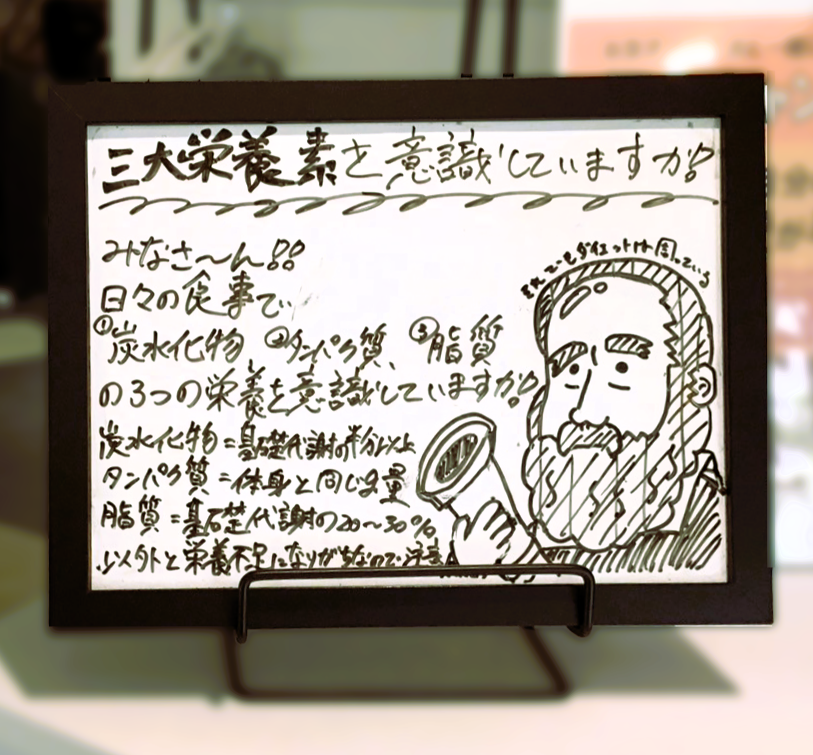 三大栄養素を意識していますか!?
みなさ〜ん!!
日々の食事で、
①炭水化物 ②タンパク質、 ③脂質
の3つの栄養を意識していますか!?
炭水化物=基礎代謝の半分以上
タンパク質=体重と同じg量
脂質=基礎代謝の20〜30%
以外と栄養不足になりがちなので注意
それでもダイエットは周っている